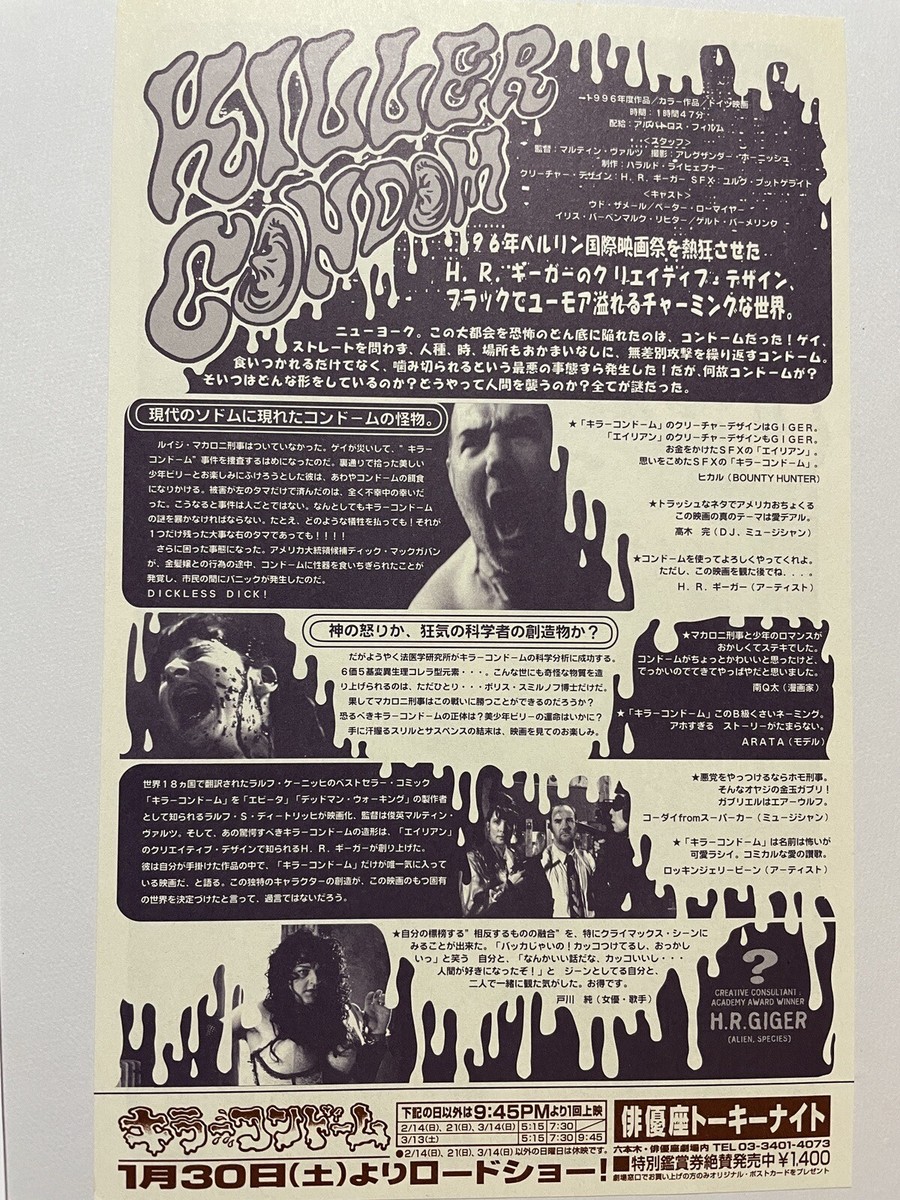 KILLER
CONDOM
1996年度作品/カラー作品/ドイツ映画
時間:1時間47分
配給:アルバトロス・フィルム
<スタッフ>
監督:マルティン・ヴァルツ 撮影:アレグザンダー・ホーニッシュ
制作:ハラルド・ライヒェブナー
クリーチャー・デザイン:H.R.ギーガー SFX:ユルグ・ブットゲライト
<キャスト>
ウド・ザメール/ペーター・ローマイヤー
イリス・バーベンマルク・リヒター/ゲルト・バーメリンク
96年ベルリン国際映画祭を熱狂させた
H.R.ギーガーのクリエイティブ・デザイン、
ブラックでユーモア溢れるチャーミングな世界。
ニューヨーク。この大都会を恐怖のどん底に陥れたのは、コンドームだった!ゲイ、
ストレートを問わず、人種、時、場所もおかまいなしに、無差別攻撃を繰り返すコンドーム。
食いつかれるだけでなく、噛み切られるという最悪の事態すら発生した!だが、何故コンドームが?
そいつはどんな形をしているのか?どうやって人間を襲うのか?全てが謎だった。
現代のソドムに現れたコンドームの怪物。
ルイジ・マカロニ刑事はついていなかった。ゲイが災いして、"キラー
コンドーム"事件を捜査するはめになったのだ。裏通りで拾った美しい
少年ビリーとお楽しみにふけろうとした彼は、あわやコンドームの餌食
になりかける。被害が左のタマだけで済んだのは、全く不幸中の幸いだ
った。こうなると事件は人ごとではない。なんとしてもキラーコンドーム
の謎を暴かなければならない。たとえ、どのような犠牲を払っても!それが
1つだけ残った大事な右のタマであっても!!!!
さらに困った事態になった。アメリカ大統領候補ディック・マックガバン
が、金髪嬢との行為の途中、コンドームに性器を食いちぎられたことが
発覚し、市民の間にパニックが発生したのだ。
DICKLESS DICK!
★「キラーコンドーム」のクリーチャーデザインはGIGER。
「エイリアン」のクリーチャーデザインもGIGER。
お金をかけたSFXの「エイリアン」。
思いをこめたSFXの「キラーコンドーム」。
ヒカル(BOUNTY HUNTER)
★トラッシュなネタでアメリカおちょくる
この映画の真のテーマは愛デアル。
高木 完(DJ、ミュージシャン)
★コンドームを使ってよろしくやってくれよ。
ただし、この映画を観た後でね....。
H.R.ギーガー(アーティスト)
神の怒りか、狂気の科学者の創造物か?
だがようやく法医学研究所がキラーコンドームの科学分析に成功する。
6価5基変異生理コレラ型元素・・・。こんな世にも奇怪な物質を造
り上げられるのは、ただひとり・・・ボリス・スミルノフ博士だけだ。
果してマカロニ刑事はこの戦いに勝つことができるのだろうか?
恐るべきキラーコンドームの正体は?美少年ビリーの運命はいかに?
手に汗握るスリルとサスペンスの結末は、映画を見てのお楽しみ。
★マカロニ刑事と少年のロマンスが
おかしくてステキでした。
コンドームがちょっとかわいいと思ったけど、
でっかいのでてきてやっぱやだと思いました。
南Q太(漫画家)
★「キラーコンドーム」このB級くさいネーミング。
アホすぎる ストーリーがたまらない。
ARATA(モデル)
世界18ヵ国で翻訳されたラルフ・ケーニッヒのベストセラー・コミック
「キラーコンドーム」を「エビータ」「デッドマン・ウォーキング」の製作者
として知られるラルフ・S・ディートリッヒが映画化、監督は俊英マルティン・
ヴァルツ。そして、あの驚愕すべきキラーコンドームの造形は、「エイリアン」
のクリエイティブ・デザインで知られるH.R.ギーガーが創り上げた。
彼は自分が手掛けた作品の中で、「キラーコンドーム」だけが唯一気に入って
いる映画だ、と語る。この独特のキャラクターの創造が、この映画のもつ固有
の世界を決定づけたと言って、過言ではないだろう。
★悪党をやっつけるならホモ刑事。
そんなオヤジの金玉ガブリ!
ガブリエルはエアーウルフ。
コーダイfromスーパーカー(ミュージシャン)
★「キラーコンドーム」は名前は怖いが
可愛ラシイ。コミカルな愛の讃歌。
ロッキンジェリービーン(アーティスト)
★自分の標榜する"相反するものの融合"を、特にクライマックス・シーンに
みることが出来た。「バッカじゃいの!カッコつけてるし、おっかし
いっ」と笑う 自分と、「なんかいい話だな、カッコいいし・・・
人間が好きになったぞ!」と ジーンとしてる自分と、
二人で一緒に観た気がした。お得です。
戸川 純(女優・歌手)
?
CREATIVE CONSULTANT:
ACADEMY AWARD WINNER
H.R.GIGER
(ALIEN, SPECIES)
キラーコンドーム
下記の日以外は9:45PMより1回上映
2/14(日)、21(日)、3/14(日) 5:15 7:30
3/13(土) 5:15 7:30 9:45
●2/14(日)、21(日)、3/14(日)以外の日曜日は休映です。
俳優座トーキーナイト
六本木・俳優座劇場内 TEL 03-3401-4073
1月30日(土)よりロードショー!
■特別鑑賞券絶賛発売中¥1,400
劇場窓口でお買い上げの方のみオリジナル・ポストカードをプレゼント